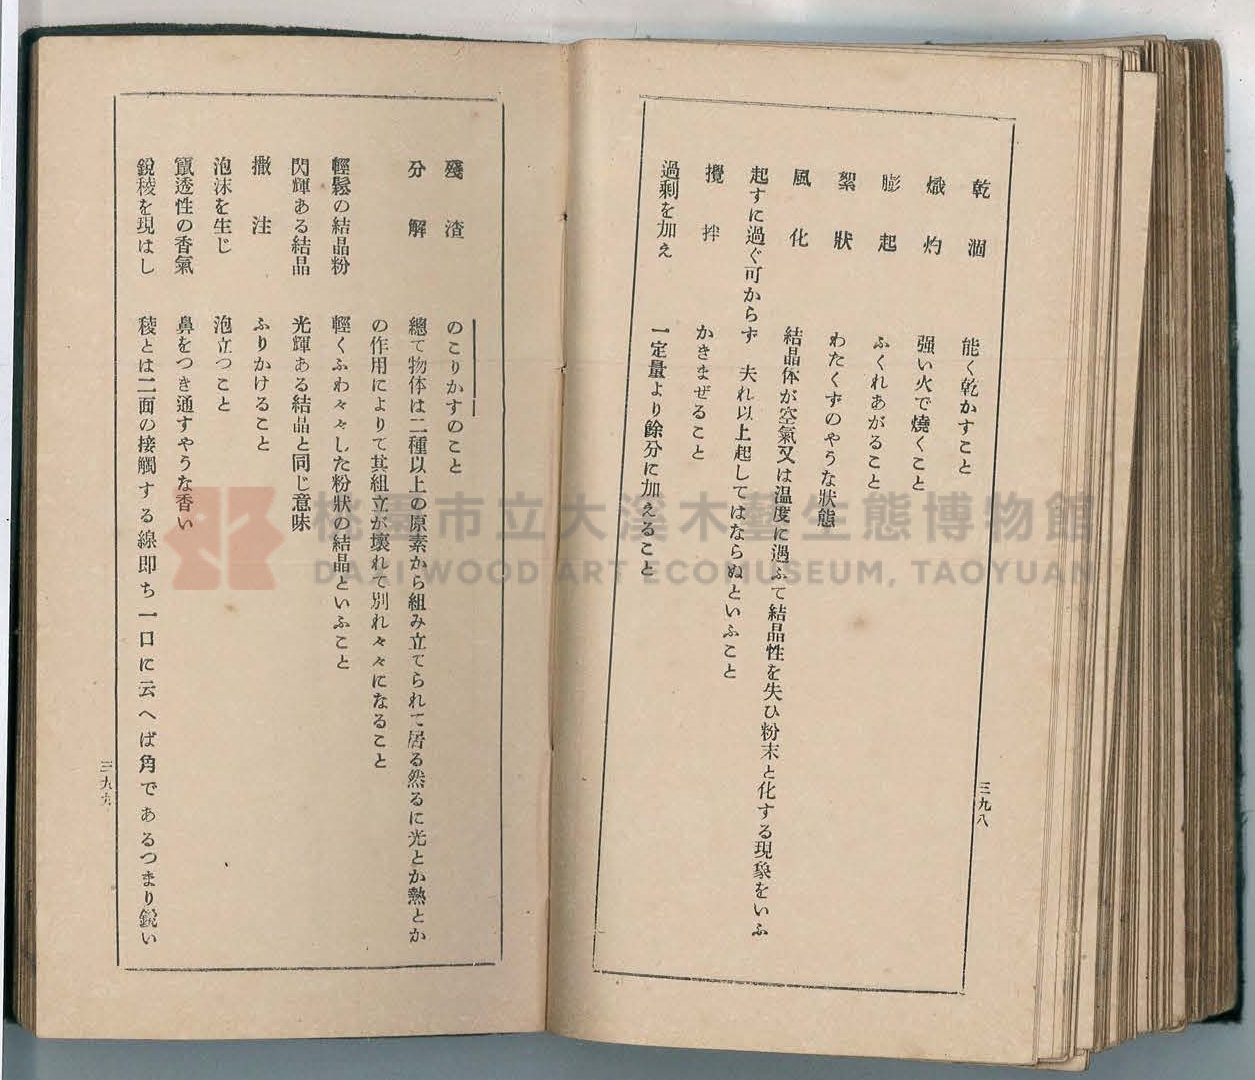 乾涸 能く乾かすこと
熾灼 强い火で燒くこと
膨起 ふくれあがること
絮狀 わたくずのやうな狀態
風化 結晶体が空氣又は温度に遇ふて結晶性を失ひ粉末と化する現象をいふ
起すに過ぐ可からず 夫れ以上起してはならぬといふこと
攪拌 かきまぜること
過剩を加え 一定量より餘分に加えること
三九八
殘渣 のこりかすのこと
分解 總て物体は二種以上の原素から組み立てられて居る然るに光とか熱とか
の作用によりて其組立が壞れて別れ々々になること
輕鬆の結晶粉 輕くふわ々々した粉狀の結晶といふこと
閃輝ある結晶 光輝ある結晶と同じ意味
撒注 ふりかけること
泡沫を生じ 泡立つこと
竄透性の香氣 鼻をつき通すやうな香い
銳稜を現はし 稜とは二面の接觸する線即ち一口に云へば角であるつまり銳い
三九九
桃園市立大溪木藝生態博物館
DAXI WOOD ART ECOMUSEUM, TAOYUAN